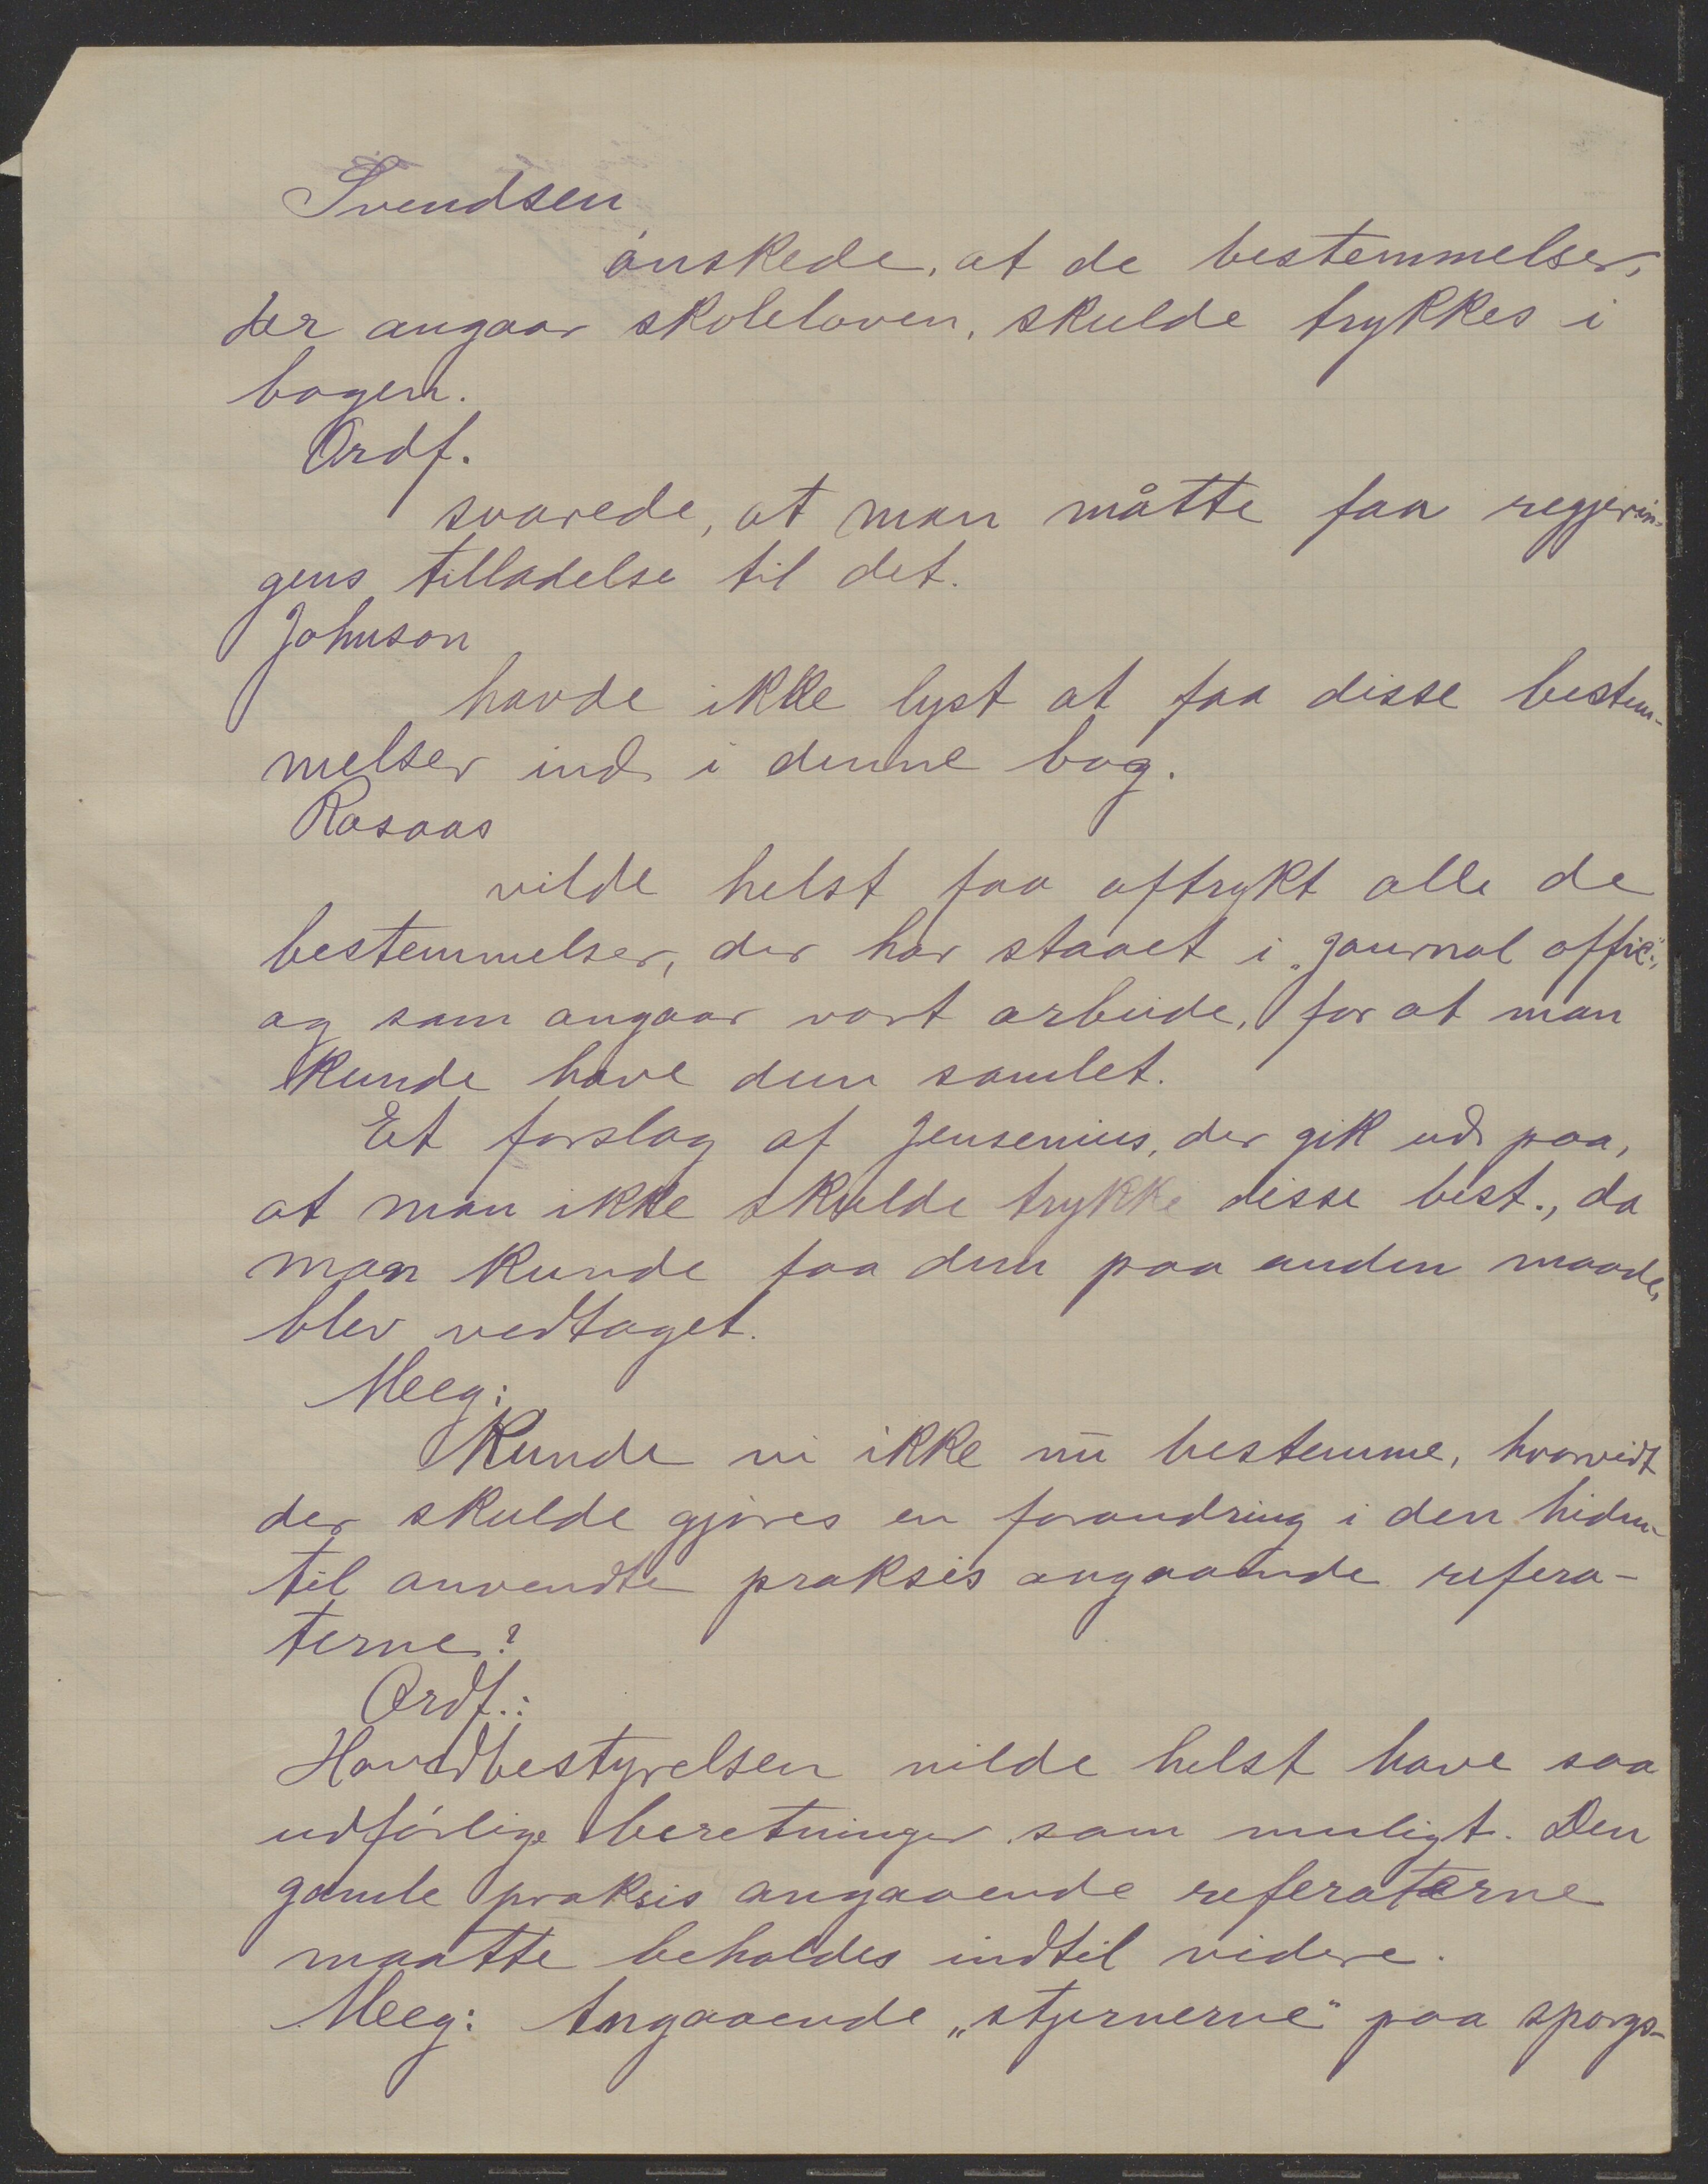 Svendsen
ónskede, at de bestemmelser,
der angaar skoleloven, skulde trykkes i
bogen.
Ordf.
svarede, at man måtte faa regjerin-
gens tilladelse til det.
Johnson
havde ikke lyst at faa disse bestem-
melser ind i denne bog.
Rosaas
vilde helst faa aftrykt alle de
bestemmelser, der har staaet i „Journal offic.",
og som angaar vort arbeide, for at man
kunde have dem samlet.
Et forslag af Jensenius, der gik ud paa,
at man ikke skulde trykke disse best., da
man kunde faa dem paa anden maade,
blev vedtaget.
Meeg:
Kunde vi ikke nu bestemme, hvorvidt
der skulde gjóres en forandring i den hiden-
til anvendte praksis angaaende refera-
terne?
Ordf.:
Hovedbestyrelsen vilde helst have saa
udfórlige beretninger som muligt. Den
gamle praksis angaaende referaterne
maatte beholdes indtil videre.
Meeg: Angaaende „stjernerne" paa spórgs-